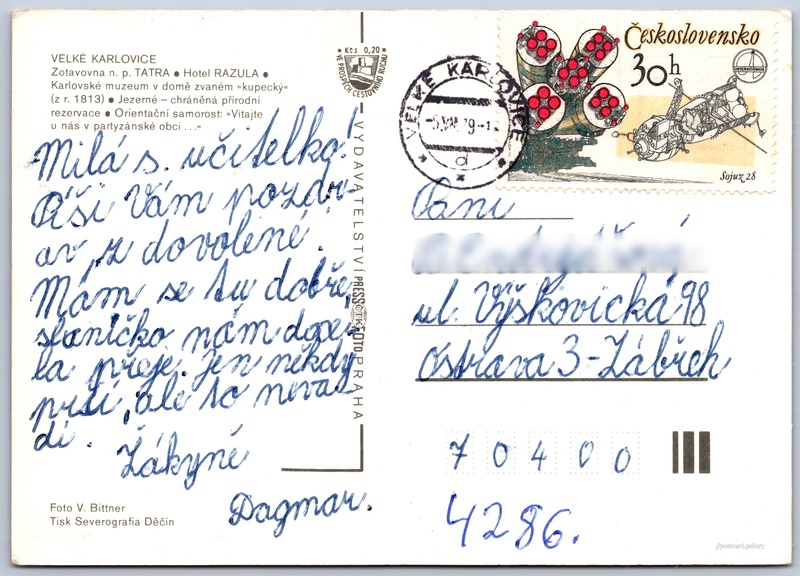 VELKÉ KARLOVICE
Zotavovna n. p. TATRA ● Hotel RAZULA ●
Karlovské muzeum v domě zvaném »kupecký«
(z r. 1813) ● Jezerné – chráněná přírodní
rezervace ● Orientační samorost: »Vítajte
u nás v partyzánské obci ...«
Milá s. učitelko!
Píši Vám pozdr-
av z dovolené.
Mám se tu dobře,
sluníčko nám docе-
la přeje. jen někdy
prší, ale to neva-
dí.
Žákyně
Dagmar.
Foto V. Bittner
Tisk Severografia Děčín
Kčs 0,20
VE PROSPĚCH CESTOVNÍHO RUCHU
VYDAVATELSTVÍ PRESSFOTO PRAHA
ČTK
VELKÉ KARLOVICE
-6.VIII.79-1
d
Československo
30h
INTERKOSMOS
Sojuz 28
Paní
ul. Výškovická 98
Ostrava 3-Zábřeh
70400
4286.
//postcard.gallery